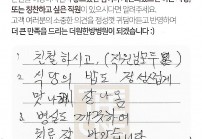 또는 정찬하고 싶은 직원이 있으시다면 알려주세요.
고객 여러분의 소중한 의견을 정성껏 귀담아듣고 반영하며
더 큰 만족을 드리는 더원한방병원이 되겠습니다 :)
1. 친절하시고, (직원님모두
2. 식당의 밥도 정성쉽게
맛나 잘 나옴
3. 병실도 깨끗하여
치료 잘 받았습니다